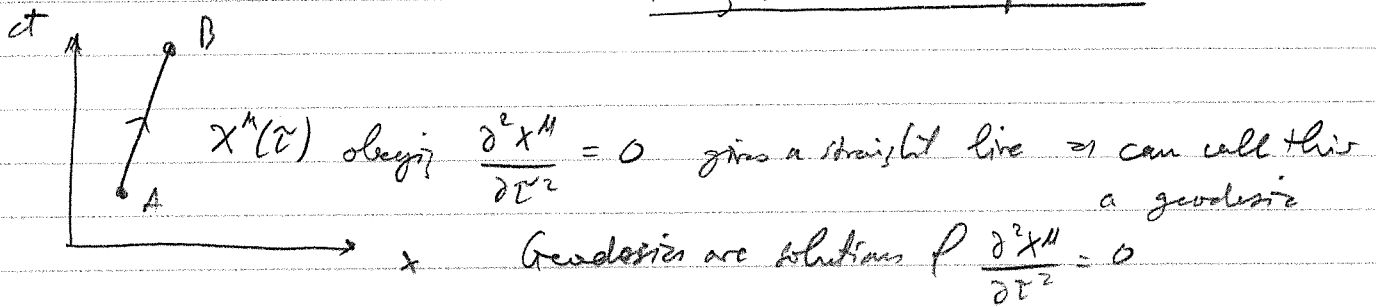 ct
B
X^μ(τ) obeying ∂²X^μ/∂τ² = 0 gives a straight line ⇒ can call this
a geodesic
A
x
Geodesics are solutions of ∂²X^μ/∂τ² = 0